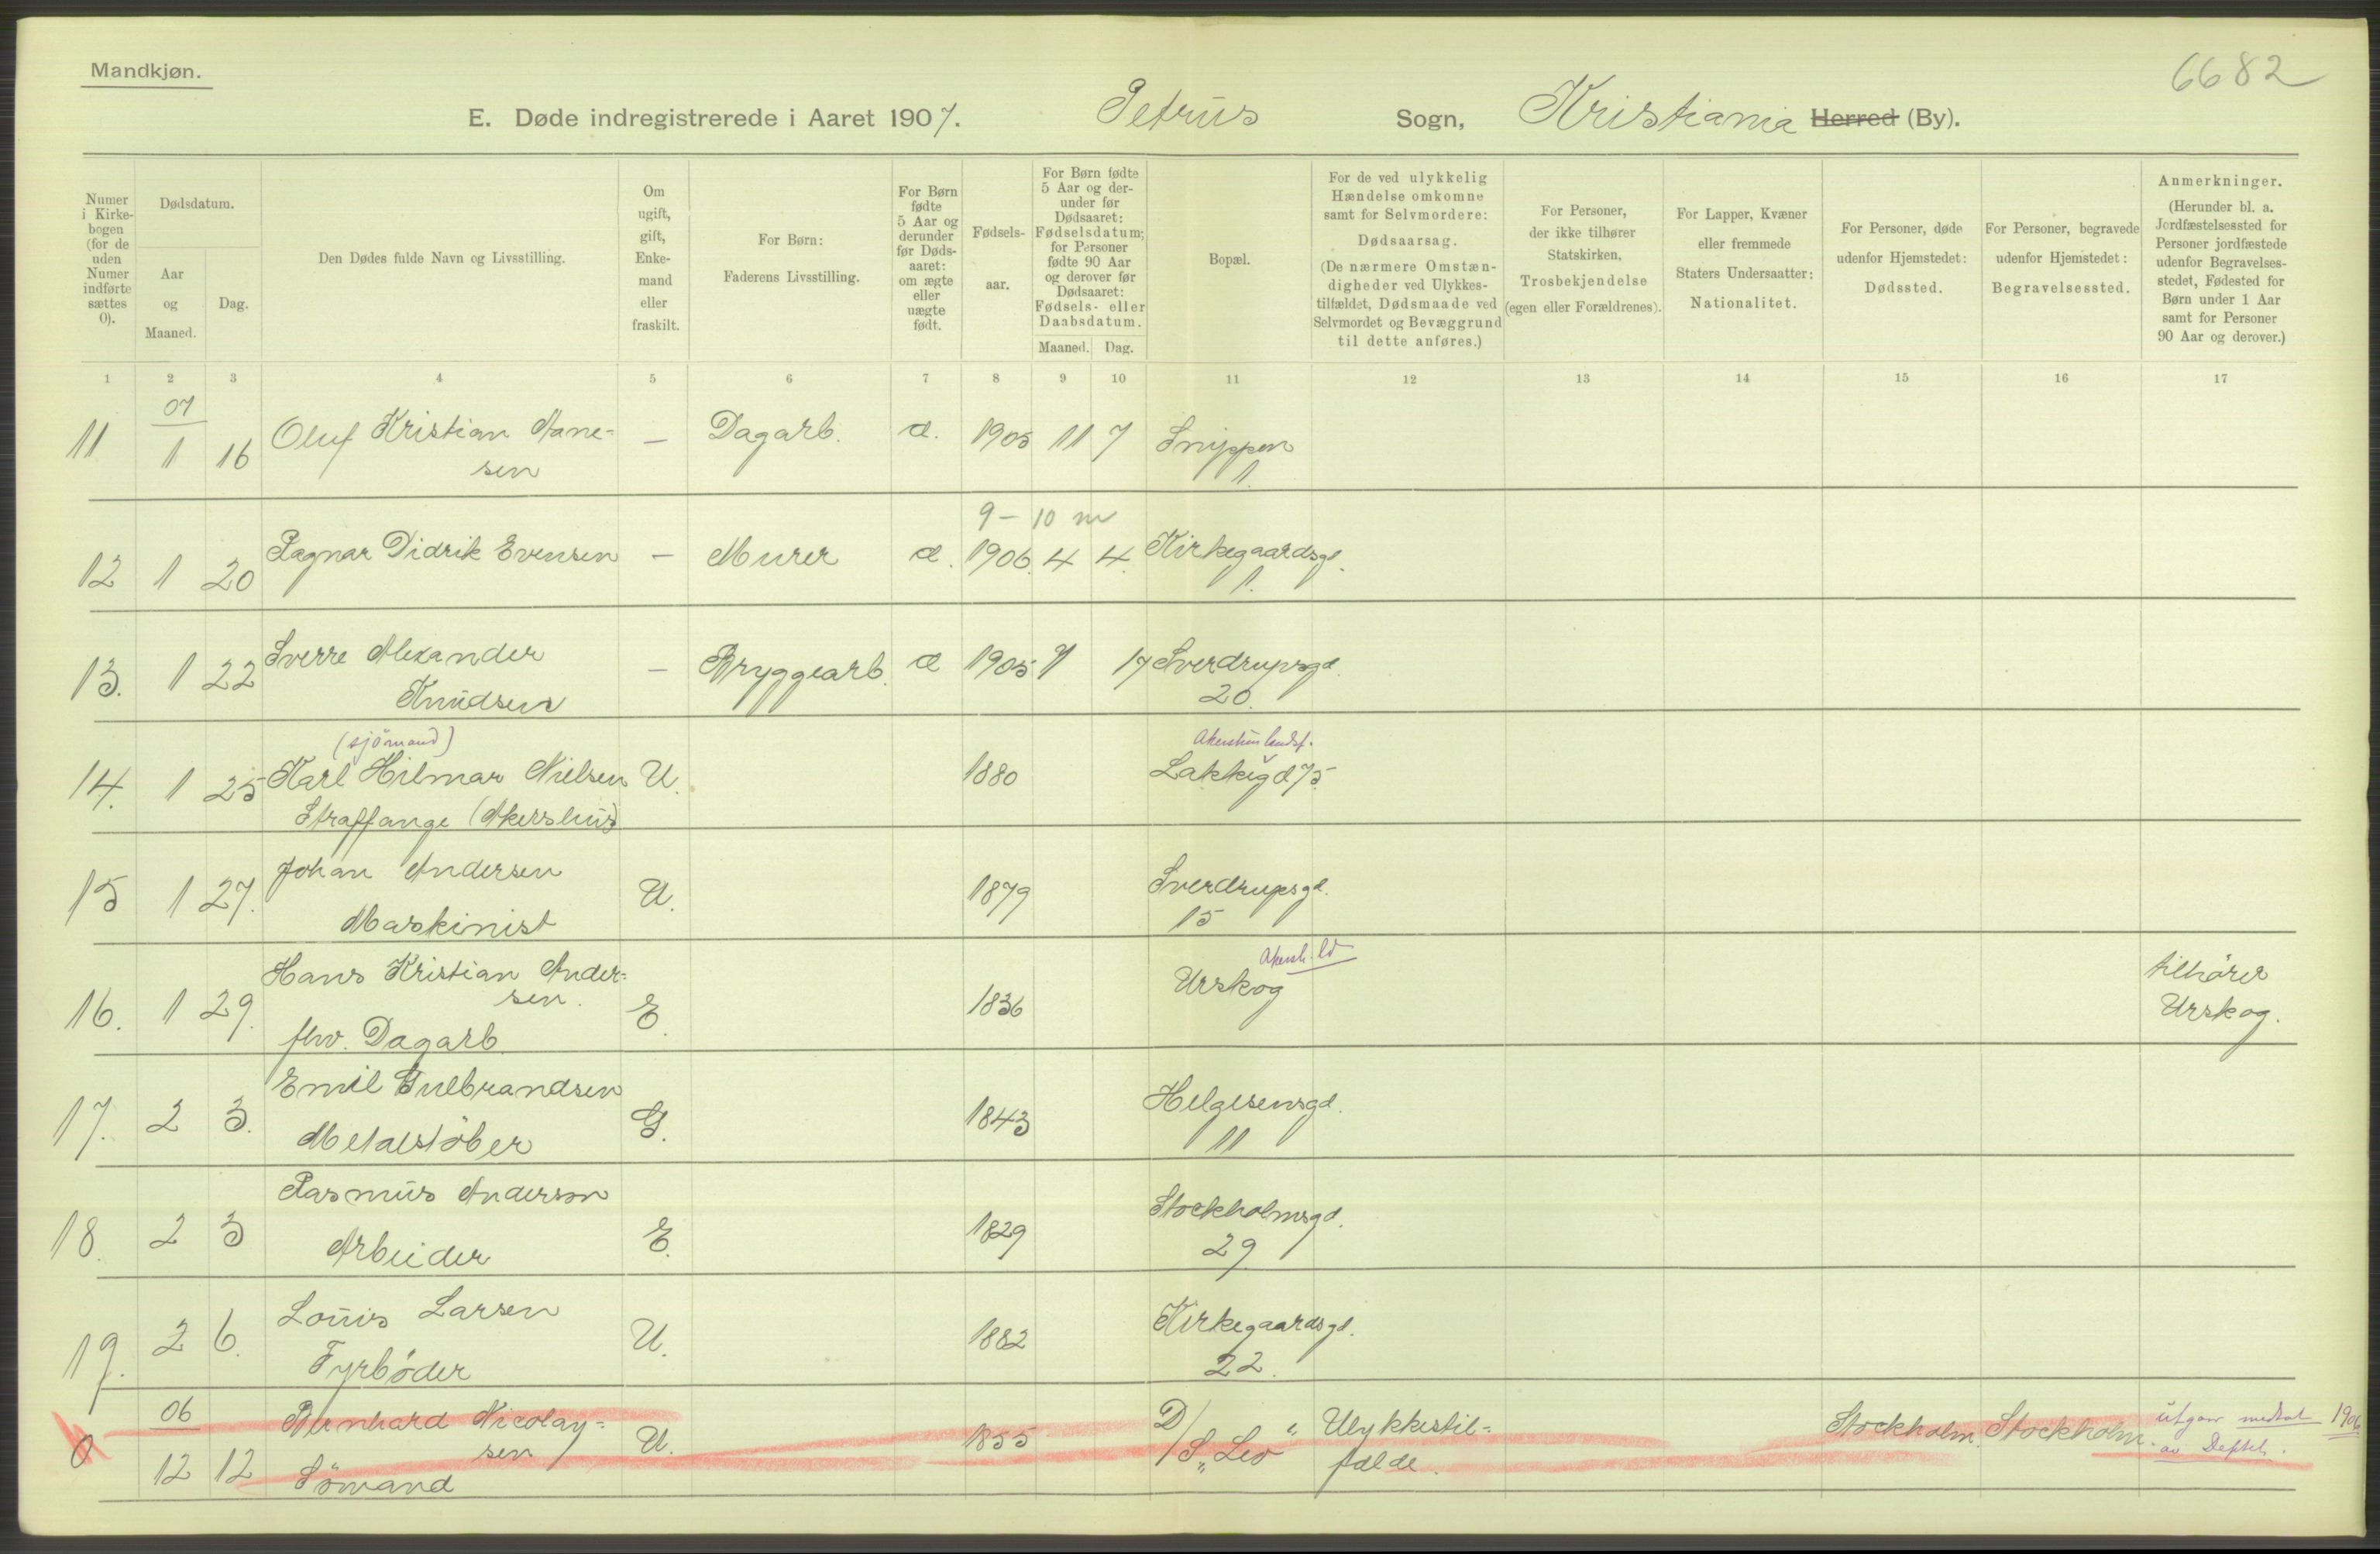 Mandkjøn.
6682
E. Døde indregistrerede i Aaret 1907. Petrus Sogn, Kristiania Herred (By).
Numer i Kirkebogen (for de uden Numer indførte sættes 0).
Dødsdatum.
Aar og Maaned.
Dag.
Den Dødes fulde Navn og Livsstilling.
Om ugift, gift, Enkemand eller fraskilt.
For Børn: Faderens Livsstilling.
For Børn fødte 5 Aar og derunder før Dødsaaret: om ægte eller uægte født.
Fødselsaar.
For Børn fødte 5 Aar og derunder før Dødsaaret: Fødselsdatum; for Personer fødte 90 Aar og derover før Dødsaaret: Fødsels- eller Daabsdatum.
Maaned. Dag.
Bopæl.
For de ved ulykkelig Hændelse omkomne samt for Selvmordere: Dødsaarsag. (De nærmere Omstændigheder ved Ulykkestilfældet, Dødsmaade ved Selvmordet og Bevæggrund til dette anføres.)
For Personer, der ikke tilhører Statskirken, Trosbekjendelse (egen eller Forældrenes).
For Lapper, Kvæner eller fremmede Staters Undersaatter: Nationalitet.
For Personer, døde udenfor Hjemstedet: Dødssted.
For Personer, begravede udenfor Hjemstedet: Begravelsessted.
Anmerkninger. (Herunder bl. a. Jordfæstelsessted for Personer jordfæstede udenfor Begravelsesstedet, Fødested for Børn under 1 Aar samt for Personer 90 Aar og derover.)
1 2 3 4 5 6 7 8 9 10 11 12 13 14 15 16 17
07
11 1 16 Oluf Kristian Hane= — Dagarb. æ. 1905 11 7 Snippen
sen 1.
9 – 10 m
12 1 20 Ragnar Didrik Evensen — Murer æ. 1906. 4 4. Kirkegaardsgd.
1.
13. 1 22 Sverre Alexander — Bryggearb. æ 1905 9 17 Sverdrupsgd.
Knudsen 20.
(sjömand) Akershus landsf.
14. 1 25 Karl Hilmar Nielsen U. 1880 Lakkegd 75.
Straffange (Akershus)
15 1 27. Johan Andersen U. 1879 Sverdrupsgd.
Maskinist 15
Akersh. ld
16. 1 29. Hans Kristian Ander= E. 1836 Urskog tilhører
sen. Urskog.
fhv. Dagarb.
17. 2 3. Emil Gulbrandsen G. 1843 Helgesensgd.
Metalstøber 11
18. 2 3 Rasmus Anderson E. 1829 Stockholmsgd.
Arbeider 29
19. 2 6. Louis Larsen U. 1882 Kirkegaardsgd.
Fyrbøder 22.
06
0 12 12 Bernhard Nicolay= U. 1855 D/S „Leo“ Ulykkestil= Stockholm. Stockholm. utgaar medtat 1906
sen falde. av Deptet.
Sømand